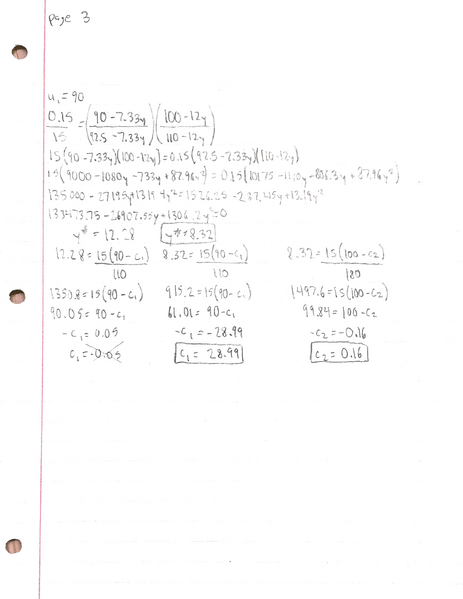 page 3
u₁ = 90
0.15/15 = ((90-7.33y)/(92.5-7.33y))((100-12y)/(110-12y))
15(90-7.33y)(100-12y) = 0.15(92.5-7.33y)(110-12y)
15(9000-1080y-733y+87.96y²) = 0.15(10175-1110y-806.3y+87.96y²)
135000-27195y+1319.4y² = 1526.25-287.45y+13.19y²
133473.75-26907.55y+1306.2y²=0
y* = 12.28 y* = 8.32
12.28 = 15(90-c₁)/110 8.32 = 15(90-c₁)/110 8.32 = 15(100-c₂)/180
1350.8 = 15(90-c₁) 915.2 = 15(90-c₁) 1497.6 = 15(100-c₂)
90.05 = 90-c₁ 61.01 = 90-c₁ 99.84 = 100-c₂
-c₁ = 0.05 -c₁ = -28.99 -c₂ = -0.16
c₁ = -0.05 c₁ = 28.99 c₂ = 0.16